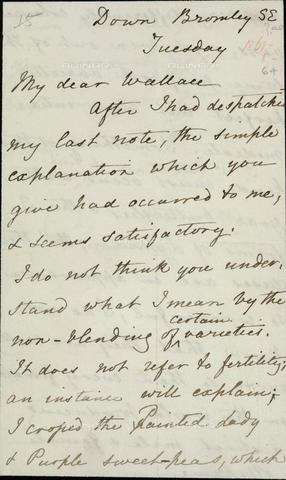 15
Down Bromley SE
Tuesday
64
My dear Wallace
After I had despatched
my last note, the simple
explanation which you
give had occurred to me,
& seems satisfactory.
I do not think you under-
stand what I mean by the
certain
non-blending of varieties.
It does not refer to fertility;
an instance will explain;
I croped the Painted Lady
& Purple sweet-peas, which